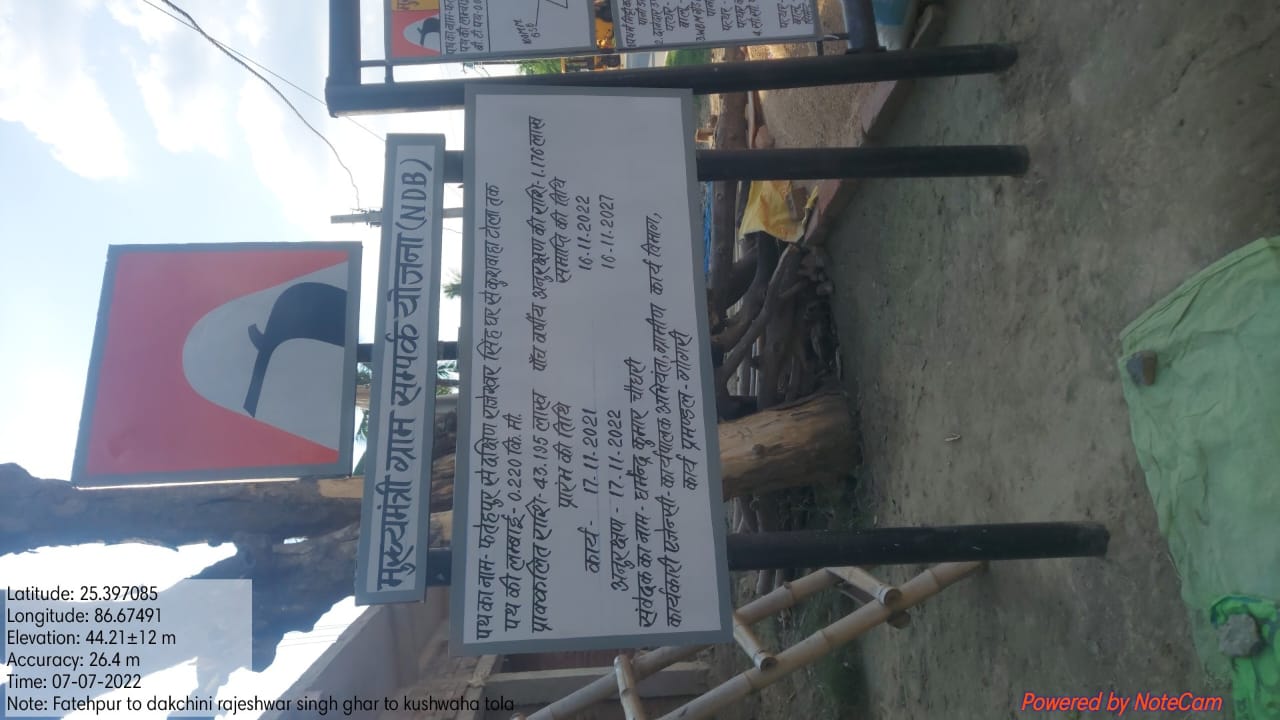 मुख्यमंत्री ग्राम सम्पर्क योजना (NDB)
पथ का नाम- फतेहपुर से दक्षिण राजेश्वर सिंह घर से कुशवाहा टोला तक
पथ की लम्बाई- 0.220 कि.मी.
प्राक्कलित राशि- 43.195 लाख पाँच वर्षीय अनुरक्षण की राशि- 1.176 लाख
प्रारंभ की तिथि समाप्ति की तिथि
कार्य - 17.11.2021 16.11.2022
अनुरक्षण - 17.11.2022 16.11.2027
संवेदक का नाम- धर्मेन्द्र कुमार चौधरी
कार्यकारी एजेन्सी- कार्यपालक अभियंता, ग्रामीण कार्य विभाग,
कार्य प्रमण्डल - गोगरी
Latitude: 25.397085
Longitude: 86.67491
Elevation: 44.21±12 m
Accuracy: 26.4 m
Time: 07-07-2022
Note: Fatehpur to dakchini rajeshwar singh ghar to kushwaha tola
Powered by NoteCam